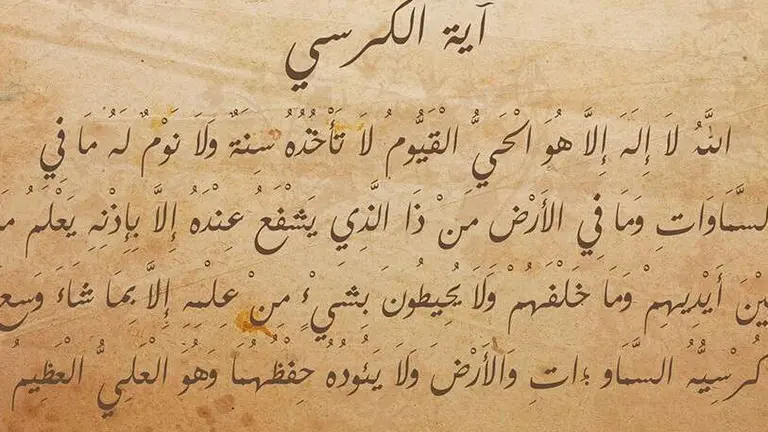 آية الكرسي
اللَّهُ لَا إِلَهَ إِلَّا هُوَ الْحَيُّ الْقَيُّومُ لَا تَأْخُذُهُ سِنَةٌ وَلَا نَوْمٌ لَهُ مَا فِي
السَّمَاوَاتِ وَمَا فِي الأَرْضِ مَنْ ذَا الَّذِي يَشْفَعُ عِنْدَهُ إِلَّا بِإِذْنِهِ يَعْلَمُ مَ
يْنَ أَيْدِيهِمْ وَمَا خَلْفَهُمْ وَلَا يُحِيطُونَ بِشَيْءٍ مِنْ عِلْمِهِ إِلَّا بِمَا شَاءَ وَسِعَ
كُرْسِيُّهُ السَّمَاو ءاتِ وَالأَرْضَ وَلَا يَئُودُهُ حِفْظُهُمَا وَهُوَ الْعَلِيُّ الْعَظِيمُ